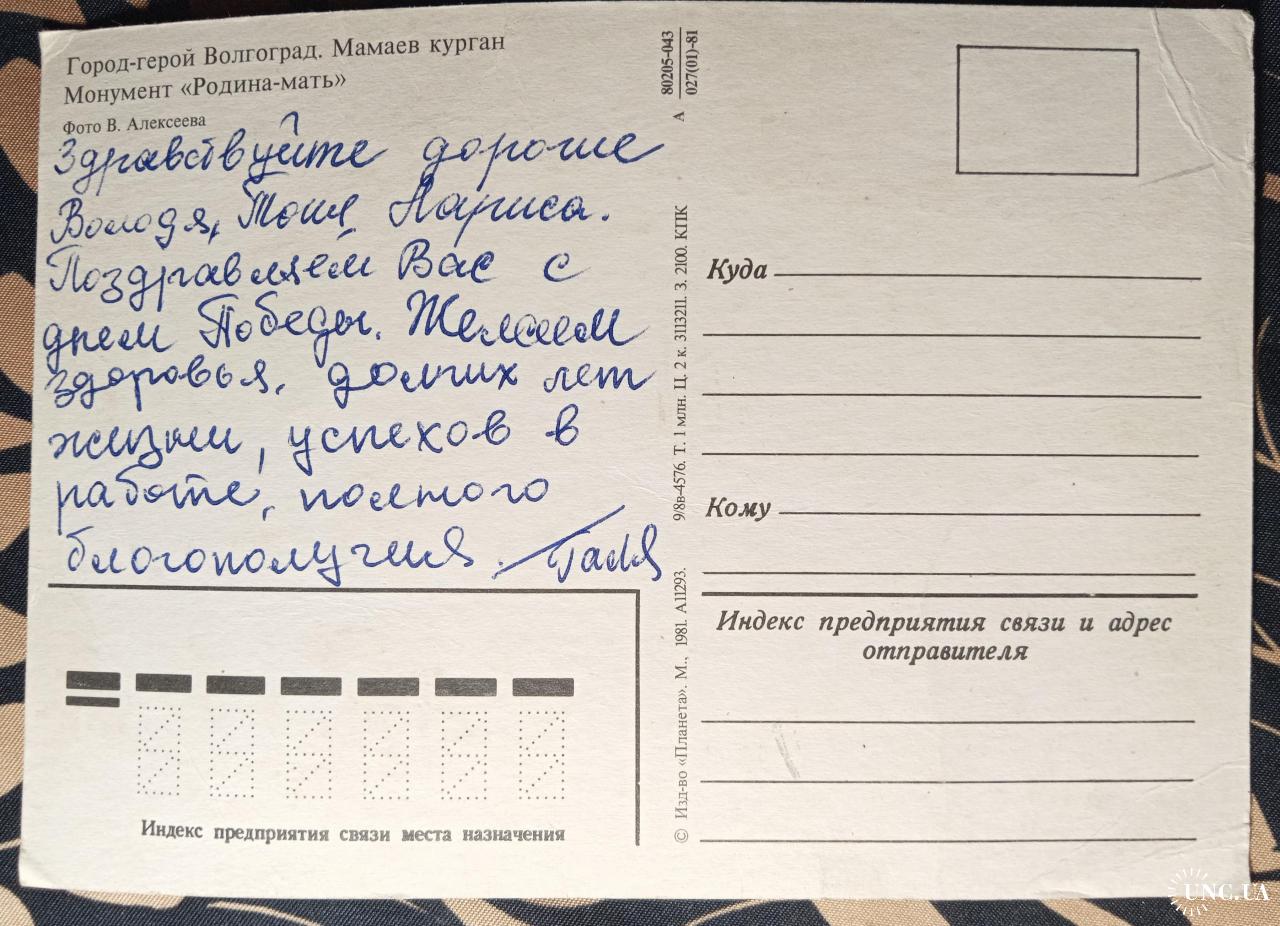 Город-герой Волгоград. Мамаев курган
Монумент «Родина-мать»
Фото В. Алексеева
Здравствуйте дорогие
Володя, Тоня, Лариса.
Поздравляем Вас с
днем Победы. Желаем
здоровья, долгих лет
жизни, успехов в
работе, полного
благополучия. Галя
Индекс предприятия связи места назначения
А 80205-043
027(01)-81
© Изд-во «Планета». М., 1981. А11293. 9/8в-4576. Т. 1 млн. Ц. 2 к. 3113211. З. 2100. КПК
Куда
Кому
Индекс предприятия связи и адрес
отправителя
UNC.UA